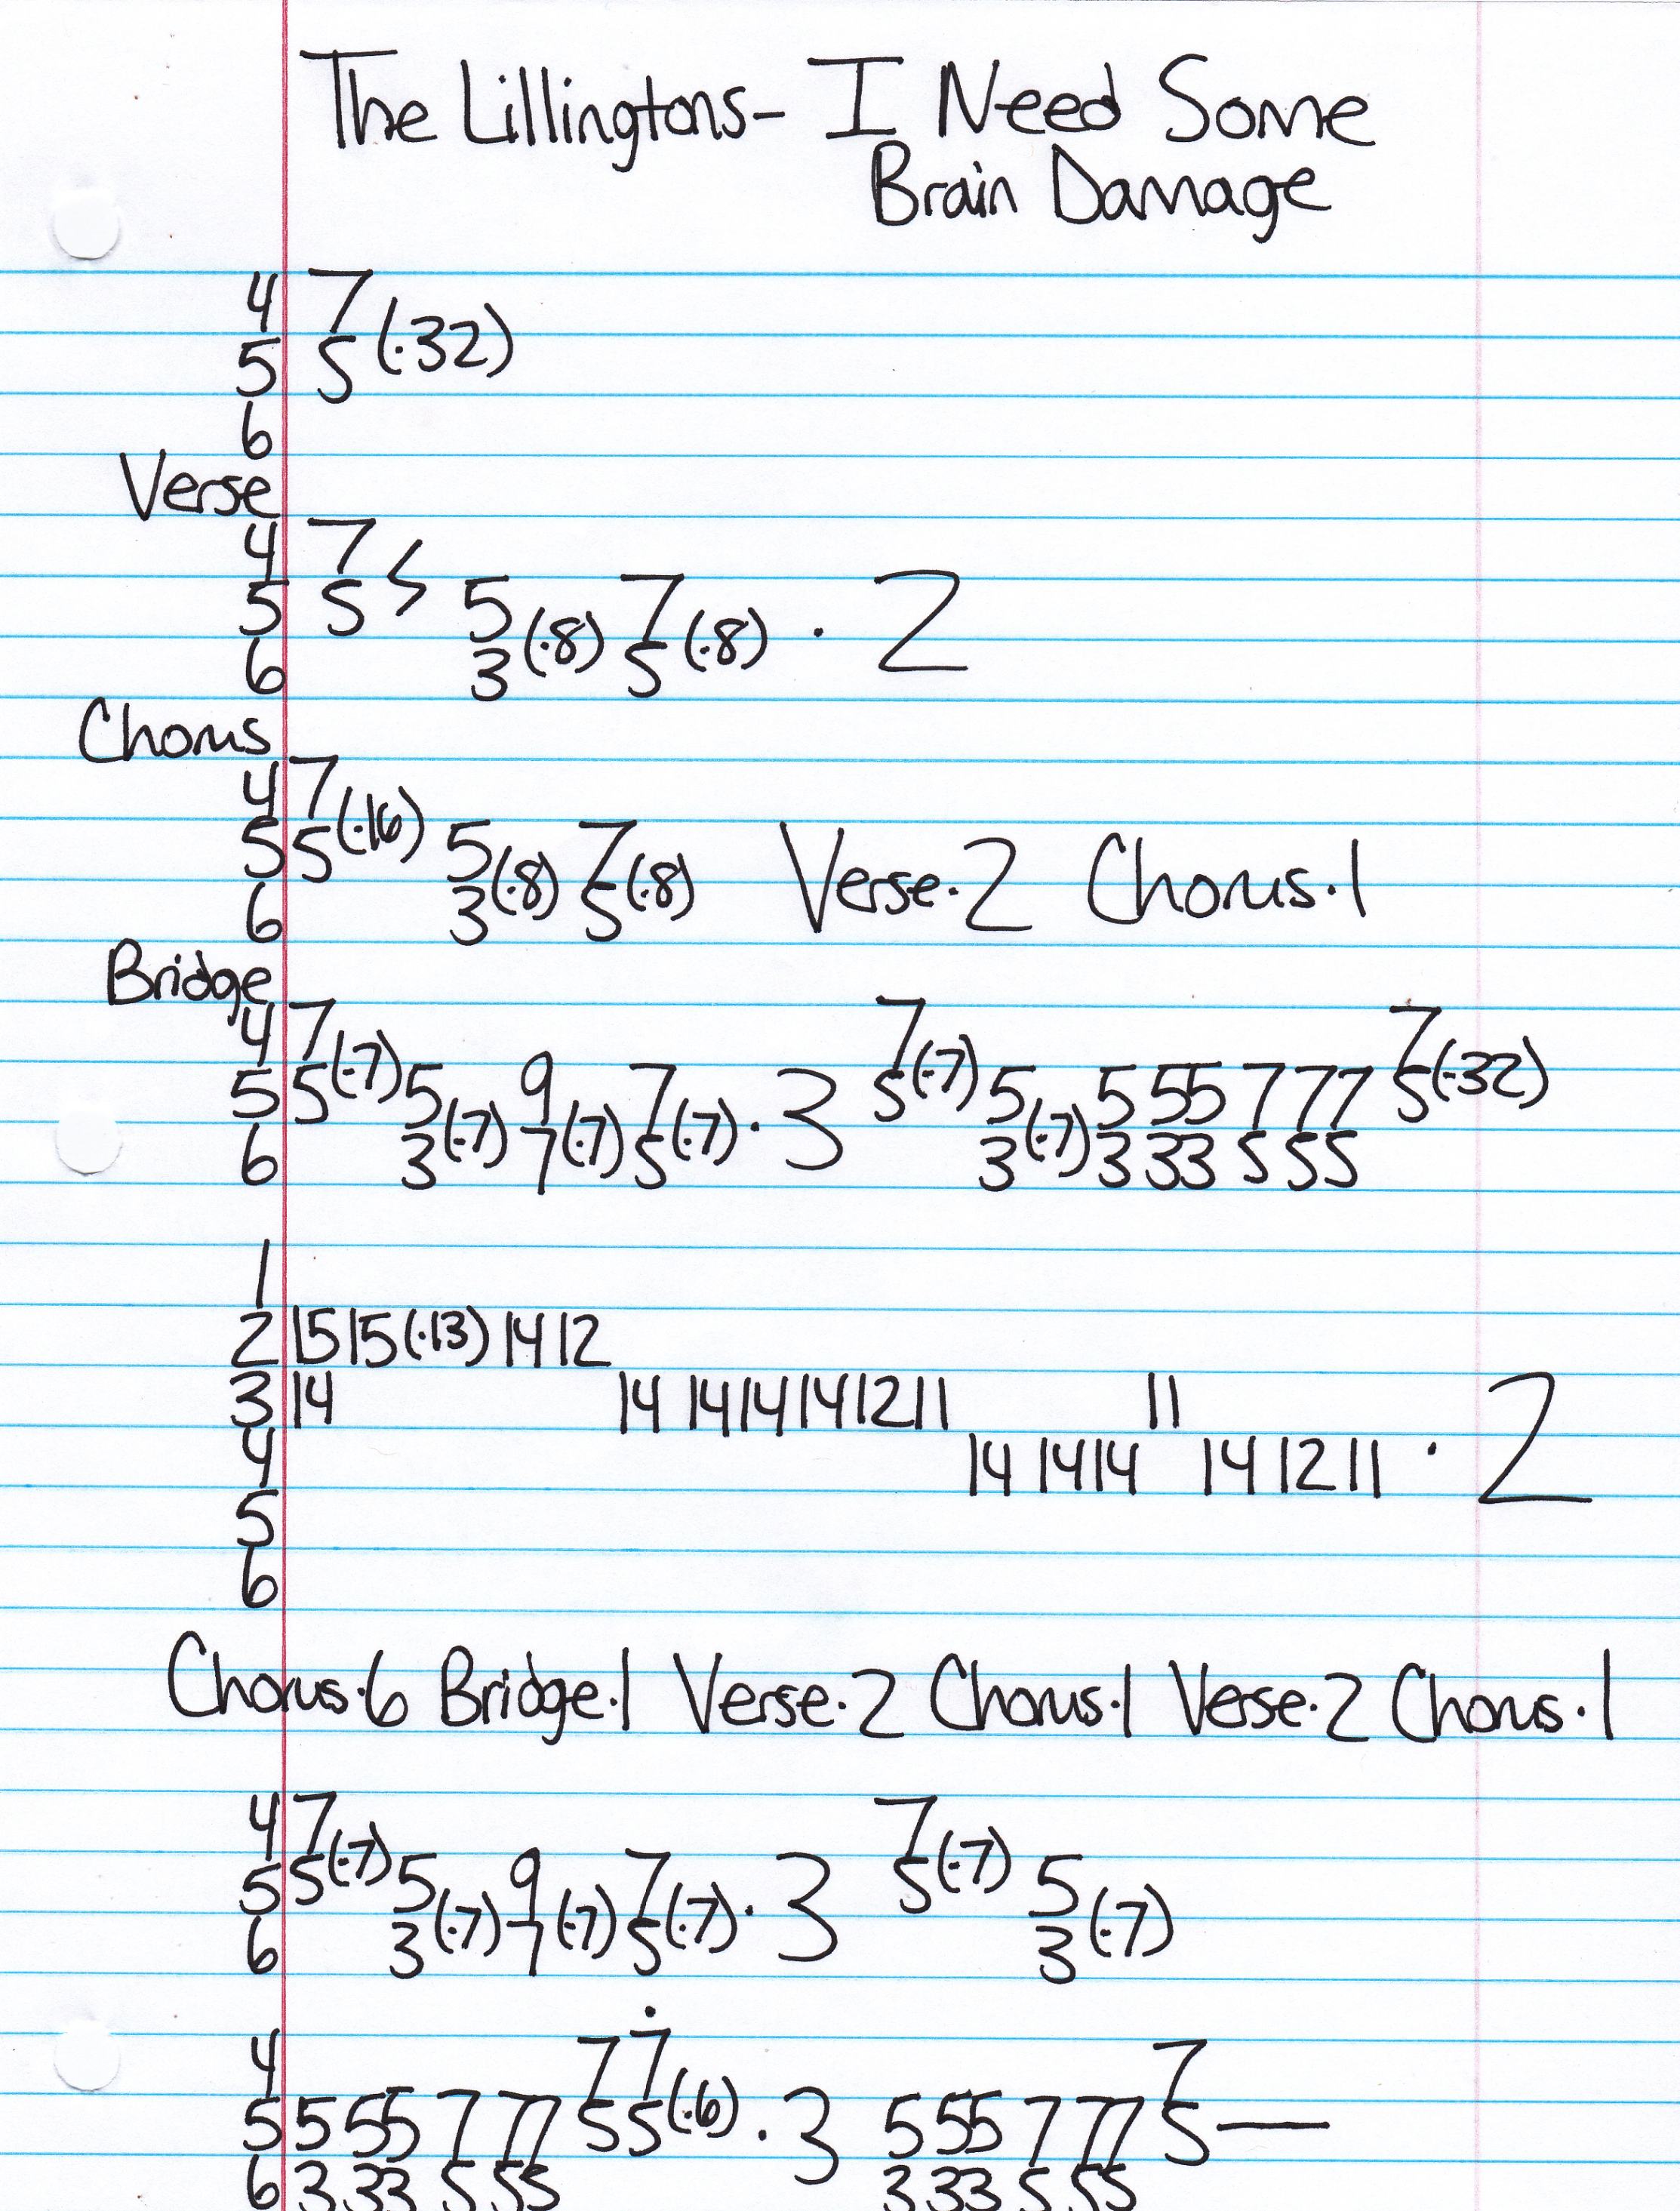 The Lillingtons- I Need Some
Brain Damage
4 7
5 5 (·32)
6
Verse
4 7
5 5 5 7
6 3 (·8) 5 (·8) · 2
Chorus
4 7
5 5 (·16) 5 7
6 3 (·8) 5 (·8) Verse·2 Chorus·1
Bridge
4 7 7 7
5 5 (·7) 5 9 7 5 (·7) 5 5 55 7 77 5 (·32)
6 3 (·7) 7 (·7) 5 (·7) · 3 3 (·7) 3 33 5 55
1
2 15 15 (·13) 14 12
3 14 14 14 14 14 12 11 11
4 14 14 14 14 12 11 · 2
5
6
Chorus·6 Bridge·1 Verse·2 Chorus·1 Verse·2 Chorus·1
4 7 7
5 5 (·7) 5 9 7 5 (·7) 5
6 3 (·7) 7 (·7) 5 (·7) · 3 3 (·7)
4 7 7 7
5 5 55 7 77 5 5 (·6) · 3 5 55 7 77 5 —
6 3 33 5 55 3 33 5 55